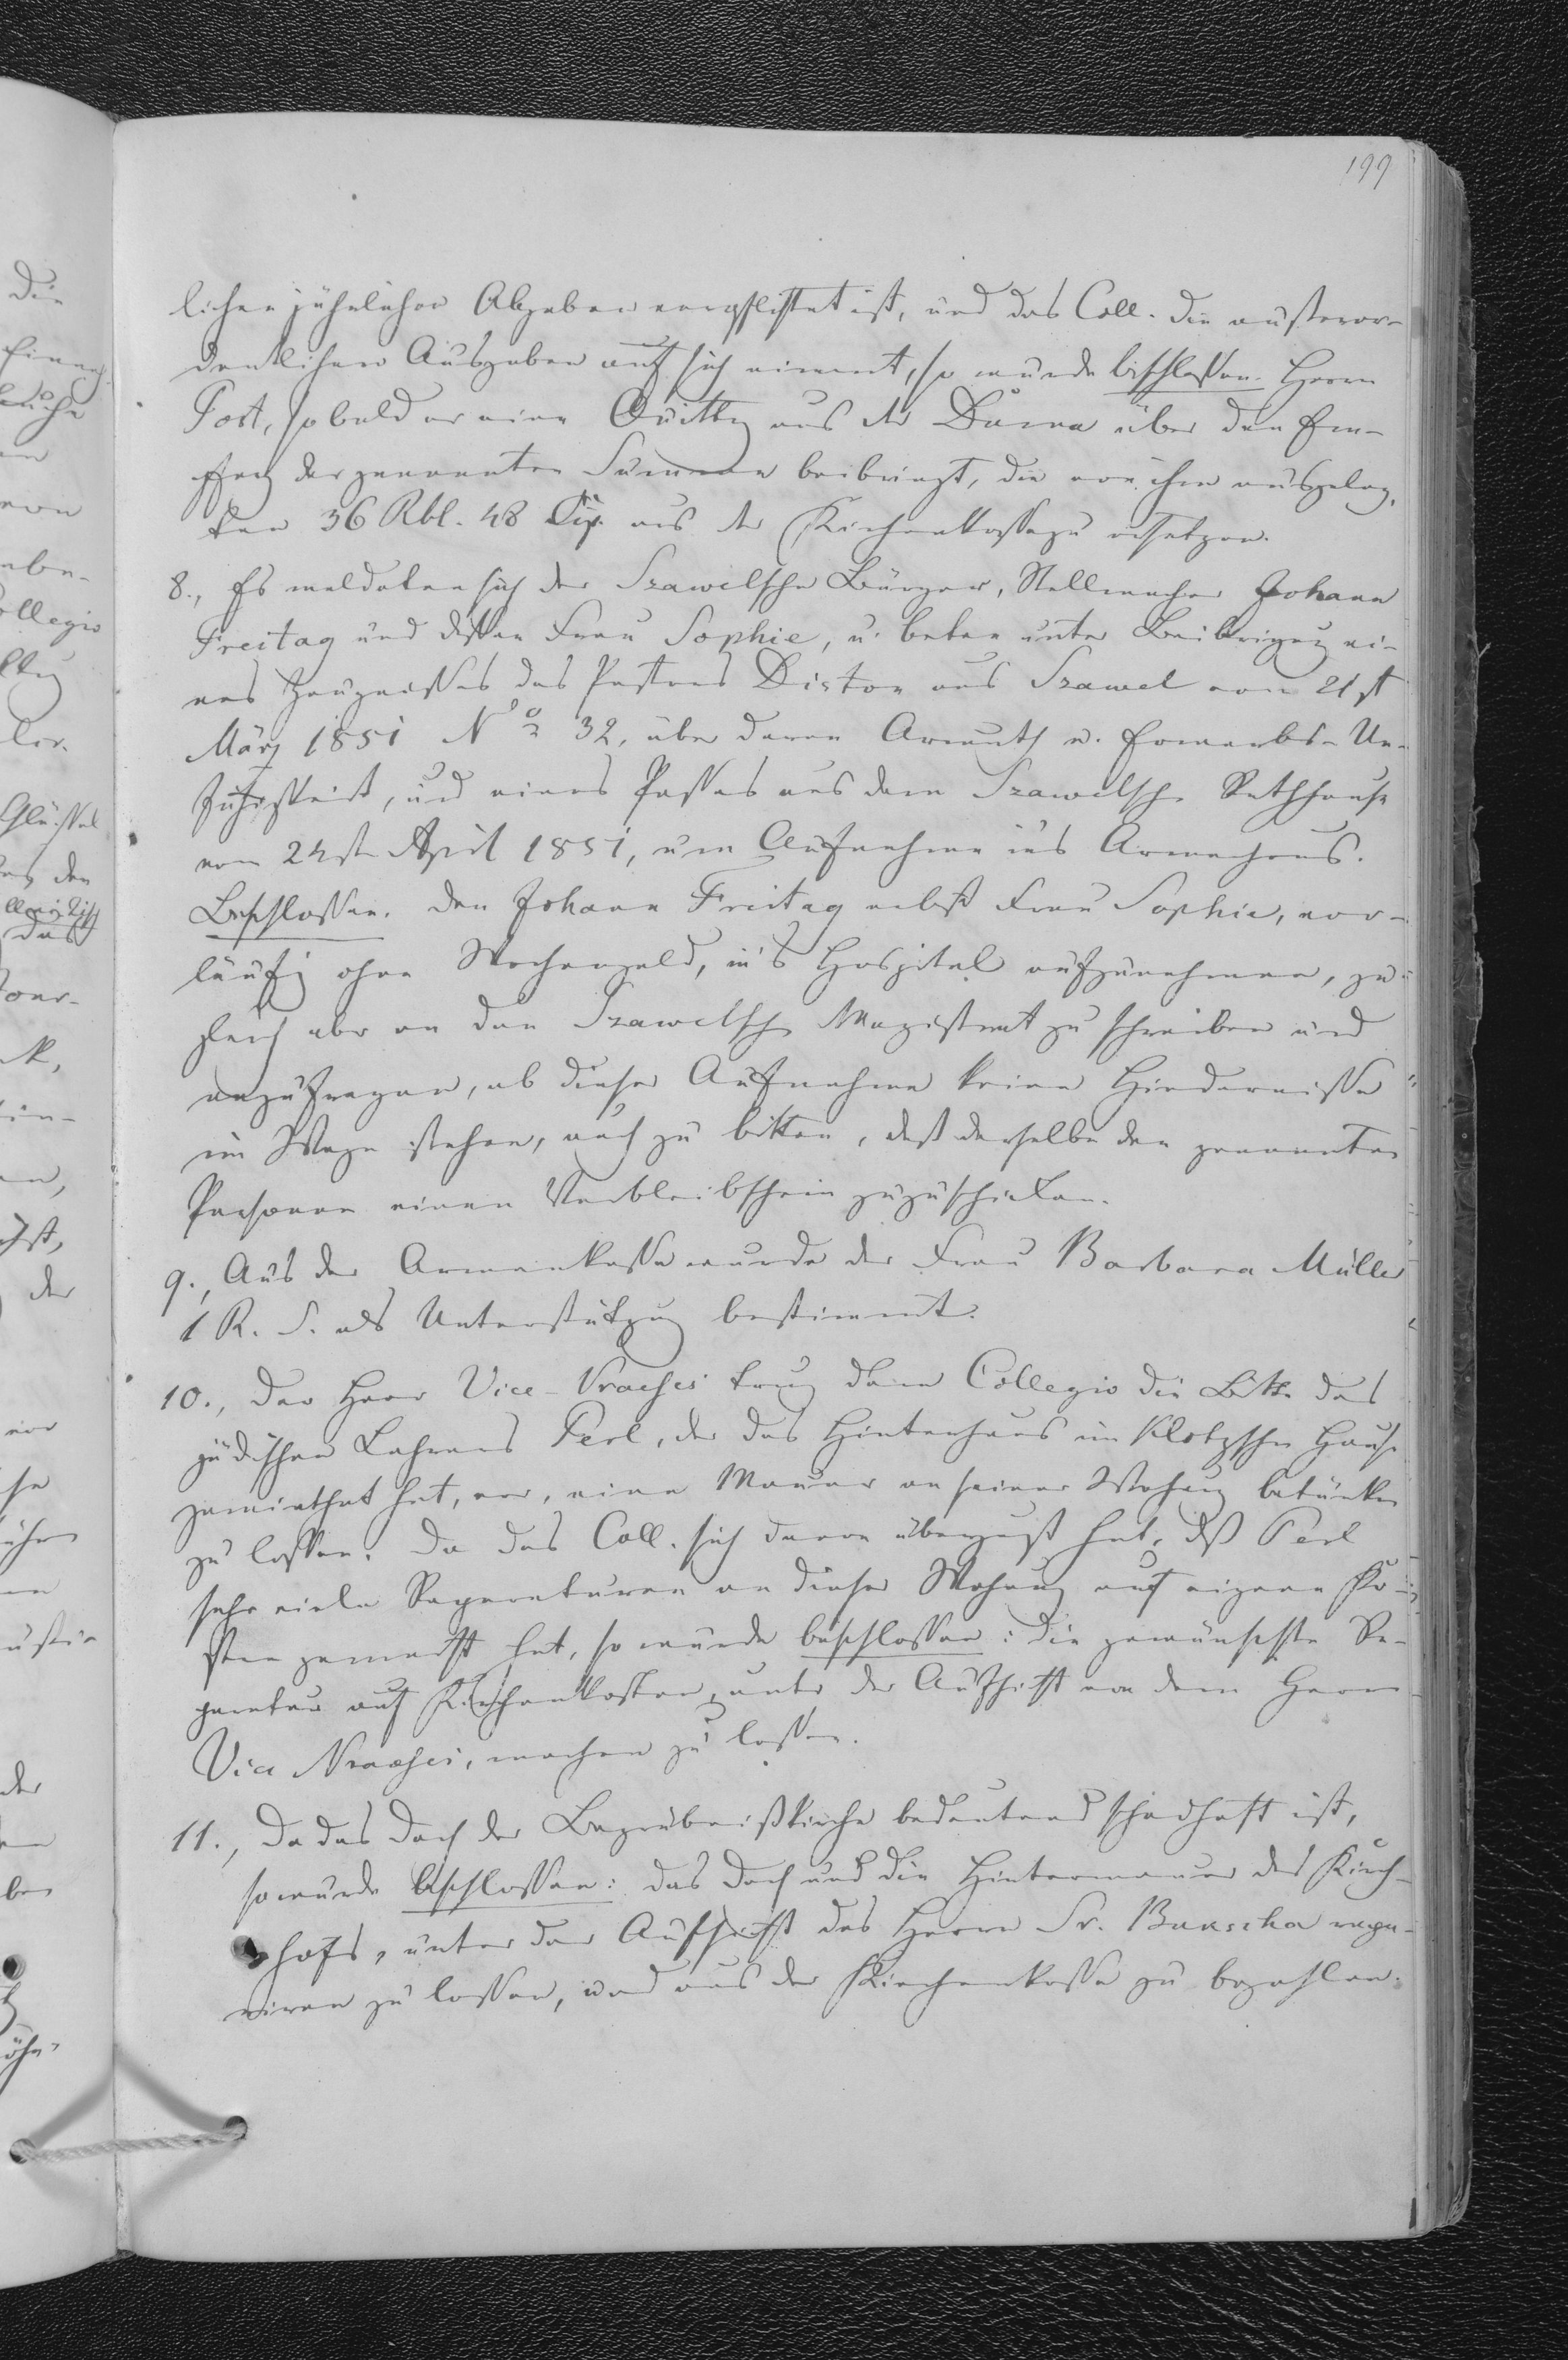 199
lichen jährlichen Abgaben verpflichtet ist, und das Coll. die ausseror-
dentlichen Ausgaben auf sich nimmt, so wurde beschlossen Herrn
Post, sobald er eine Quittg aus der Duma über den Em-
pfang der genannten Summe beibringt, die von ihm ausgeleg-
ten 36 Rbl. 48 Cop. aus der Kirchenkasse zu ersetzen.
8., Es meldeten sich der Szawelsche Bürger, Stellmacher Johann
Freitag und dessen Frau Sophie, u. beten unter Beibringung ei-
nes Zeugnisses des Pastors Diston aus Szawel vom 21st
März 1851 No 32, über deren Armuth u. Erwerbs-Un-
fähigkeit, und eines Passes aus dem Szawelschen Rathhause
vom 24st April 1851, um Aufnahme in's Armenhaus.
Beschlossen. den Johann Freitag nebst Frau Sophie, vor-
läufig ohne Wochengeld, in's Hospital aufzunehmen, zu-
gleich aber an den Szawelschen Magistrat zu schreiben und
anzufragen, ob dieser Aufnahme keine Hindernisse
im Wege stehen, auch zu bitten, dass derselbe den genannten
Personen einen Verbleibschein zuzuschicken.
9., Aus der Armenkasse wurde der Frau Barbara Müller
1 R. S. als Unterstützung bestimmt.
10., Der Herr Vice-Praeses trug dem Collegio die Bitte des
jüdischen Lehrers Perl, der das Hinterhaus im Klotzschen Hause
gemiethet hat, vor, eine Mauer an seiner Wohnung betünken
zu lassen. Da das Coll. sich davon überzeugt hat, dass Perl
sehr viele Reparaturen an dieser Wohnung auf eigene Ko-
sten gemacht hat, so wurde beschlossen: die gewünschte Re-
paratur auf Kirchenkosten, unter der Aufsicht von dem Herrn
Vice Praeses, machen zu lassen.
11., Da das Dach der Begräbnisskirche bedeutend schadhaft ist,
so wurde beschlossen: das Dach und die Hintermauer des Kirch-
hofs, unter der Aufsicht des Herrn Fr. Bauscha repa-
riren zu lassen, und aus der Kirchenkasse zu bezahlen.